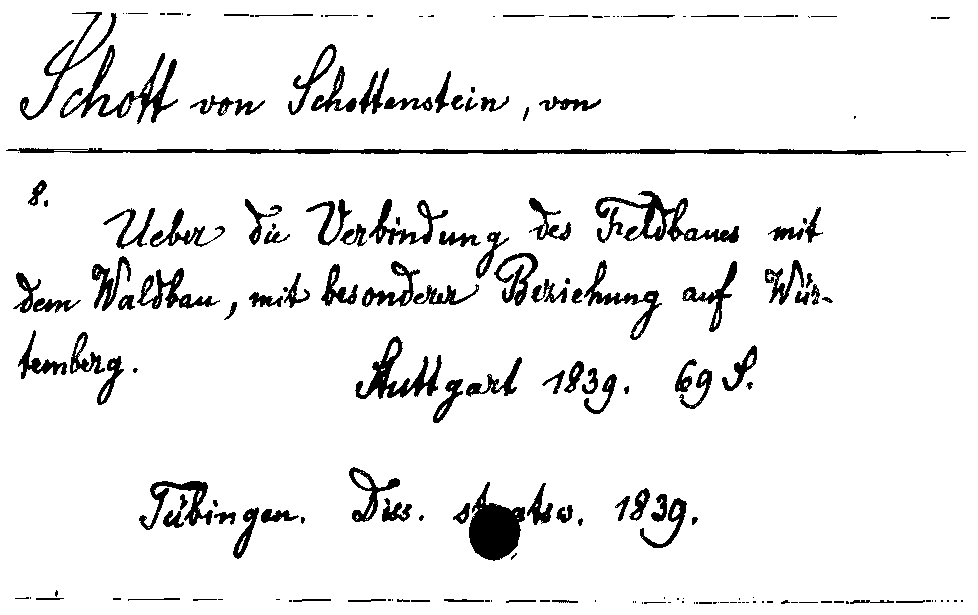 Schott von Schottenstein, von
8.
Ueber die Verbindung des Feldbaues mit
dem Waldbau, mit besonderer Beziehung auf Wür-
temberg.
Stuttgart 1839. 69 S.
Tübingen. Diss. staatsw. 1839.